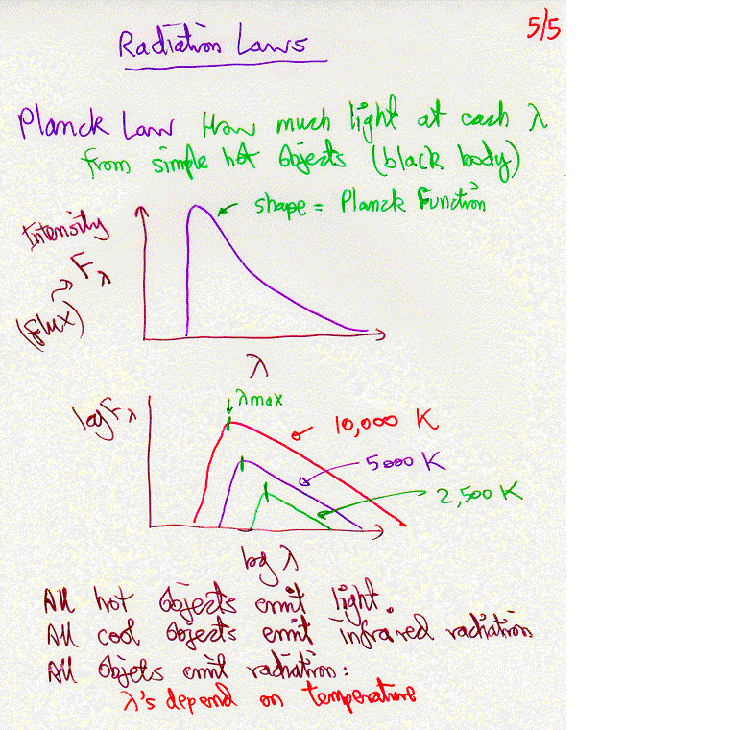 5/5
Radiation Laws
Planck Law How much light at each λ
from simple hot objects (black body)
shape = Planck Function
Intensity
Fλ
(flux)
λ
log Fλ
λmax
10,000 K
5000 K
2,500 K
log λ
All hot objects emit light.
All cool objects emit infrared radiation
All objets emit radiation:
λ's depend on temperature